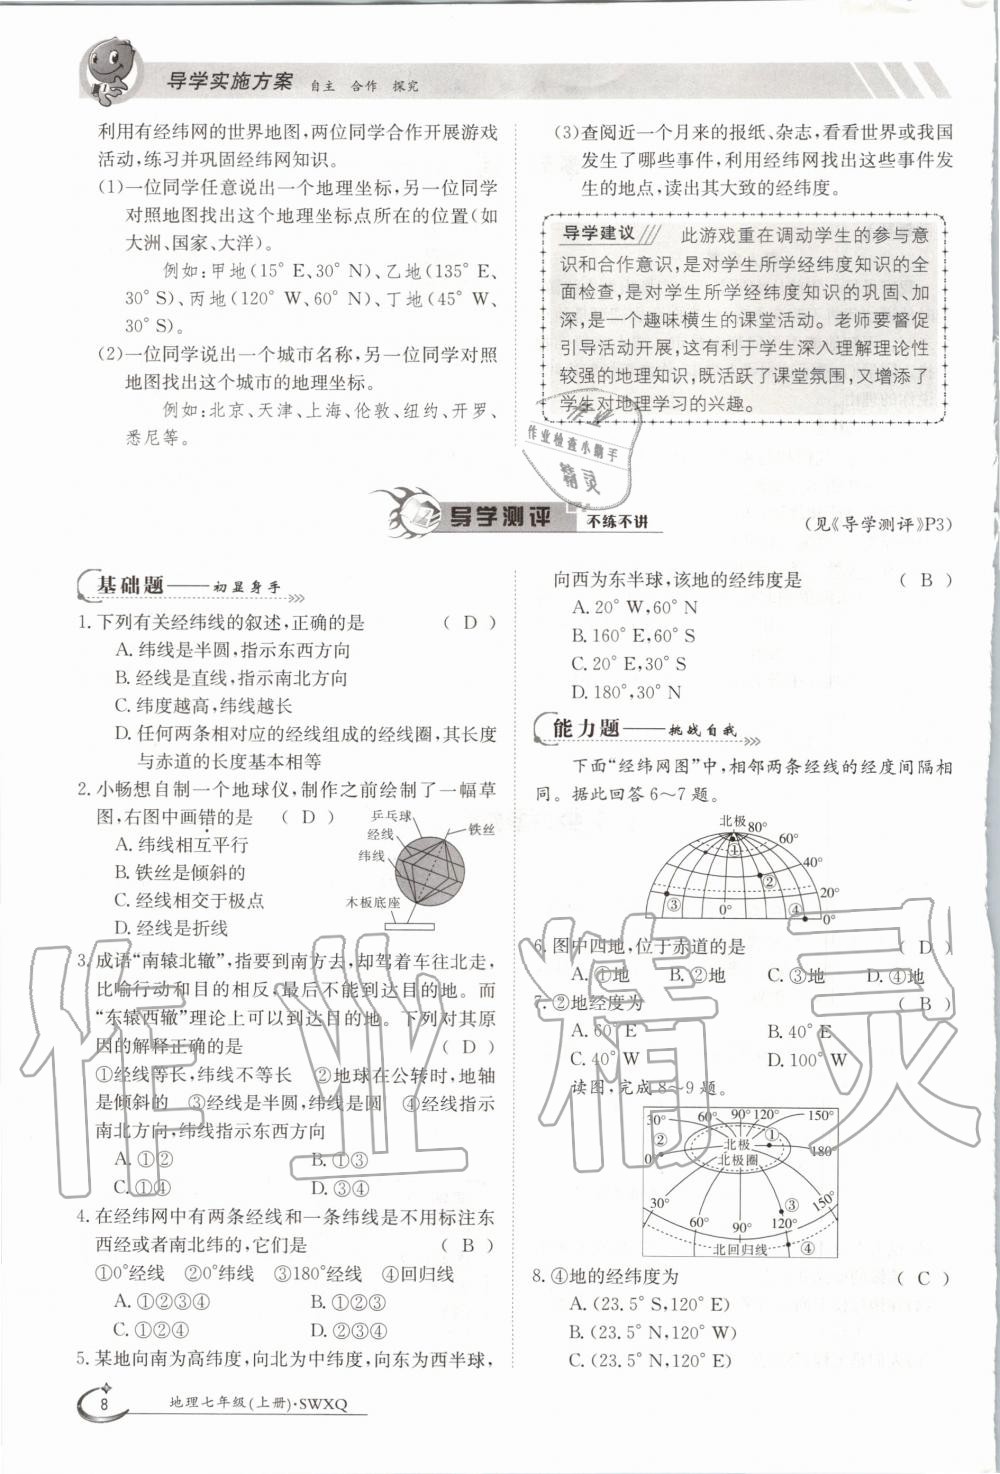 导学实施方案 自主 合作 探究
利用有经纬网的世界地图,两位同学合作开展游戏
活动,练习并巩固经纬网知识。
(1)一位同学任意说出一个地理坐标,另一位同学
对照地图找出这个地理坐标点所在的位置(如
大洲、国家、大洋)。
例如:甲地(15°E、30°N)、乙地(135°E、
30°S)、丙地(120°W、60°N)、丁地(45°W、
30°S)。
(2)一位同学说出一个城市名称,另一位同学对照
地图找出这个城市的地理坐标。
例如:北京、天津、上海、伦敦、纽约、开罗、
悉尼等。
(3)查阅近一个月来的报纸、杂志,看看世界或我国
发生了哪些事件,利用经纬网找出这些事件发
生的地点,读出其大致的经纬度。
导学建议 此游戏重在调动学生的参与意
识和合作意识,是对学生所学经纬度知识的全
面检查,是对学生所学经纬度知识的巩固、加
深,是一个趣味横生的课堂活动。老师要督促
引导活动开展,这有利于学生深入理解理论性
较强的地理知识,既活跃了课堂氛围,又增添了
学生对地理学习的兴趣。
作业
作业检查小助手
精灵
导学测评 不练不讲
(见《导学测评》P3)
基础题——初显身手
1.下列有关经纬线的叙述,正确的是 ( D )
A.纬线是半圆,指示东西方向
B.经线是直线,指示南北方向
C.纬度越高,纬线越长
D.任何两条相对应的经线组成的经线圈,其长度
与赤道的长度基本相等
2.小畅想自制一个地球仪,制作之前绘制了一幅草
图,右图中画错的是 ( D )
A.纬线相互平行
B.铁丝是倾斜的
C.经线相交于极点
D.经线是折线
乒乓球
经线
铁丝
纬线
木板底座
3.成语“南辕北辙”,指要到南方去,却驾着车往北走,
比喻行动和目的相反,最后不能到达目的地。而
“东辕西辙”理论上可以到达目的地。下列对其原
因的解释正确的是 ( D )
①经线等长,纬线不等长 ②地球在公转时,地轴
是倾斜的 ③经线是半圆,纬线是圆 ④经线指示
南北方向,纬线指示东西方向
A.①② B.①③
C.①④ D.③④
4.在经纬网中有两条经线和一条纬线是不用标注东
西经或者南北纬的,它们是 ( B )
①0°经线 ②0°纬线 ③180°经线 ④回归线
A.①②③④ B.①②③
C.①②④ D.②③④
5.某地向南为高纬度,向北为中纬度,向东为西半球,
向西为东半球,该地的经纬度是 ( B )
A.20°W,60°N
B.160°E,60°S
C.20°E,30°S
D.180°,30°N
能力题——挑战自我
下面“经纬网图”中,相邻两条经线的经度间隔相
同。据此回答6～7题。
北极 80°
60°
①
40°
②
20°
③ 0° ④ 0°
6.图中四地,位于赤道的是 ( D )
A.①地 B.②地 C.③地 D.④地
7.②地经度为 ( B )
A.60°E B.40°E
C.40°W D.100°W
读图,完成8～9题。
30° 60° 90° 120° 150°
② ①
北极
0° 北极圈 180°
30° ③ 150°
60° 90° 120°
北回归线 ④
8.④地的经纬度为 ( C )
A.(23.5°S,120°E)
B.(23.5°N,120°W)
C.(23.5°N,120°E)
8 地理七年级(上册)·SWXQ
作业精灵